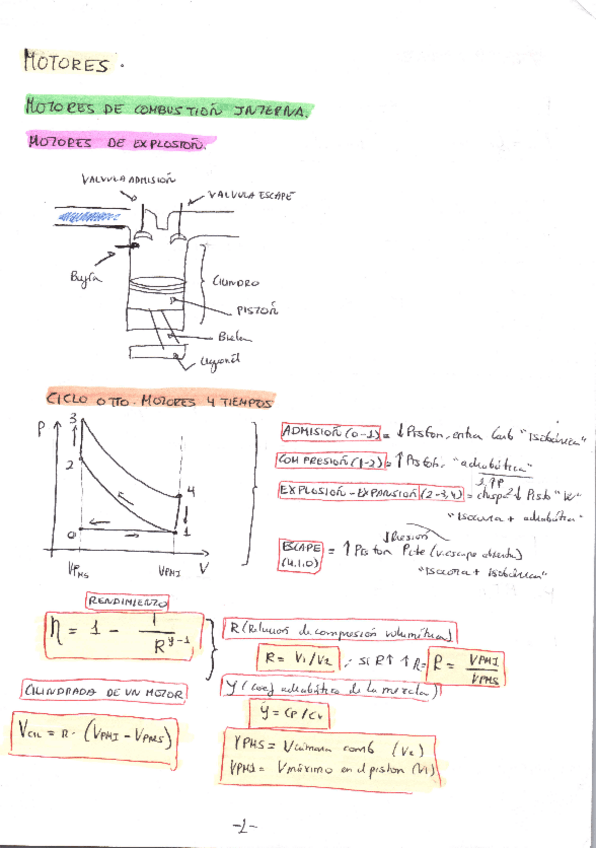 MOTORES.
MOTORES DE COMBUSTIÓN INTERNA.
MOTORES DE EXPLOSIÓN.
VALVULA ADMISIÓN
VALVULA ESCAPE
Bujía
CILINDRO
PISTÓN
Biela
Cigüeñal
CICLO OTTO. MOTORES 4 TIEMPOS
P
3
2
4
0
1
VPMS
VPMI
V
ADMISIÓN (0-1) = ↓ Piston, entra Comb "Isobárica"
COMPRESIÓN (1-2) = ↑ Pistón, "adiabática"
EXPLOSIÓN - EXPANSIÓN (2-3,4) = chispa ↓ Pistó
"Isocora + adiabática"
↓ Presión
ESCAPE (4.1.0) = ↑ Piston Pcte (v. escape abierta)
"Isocora + isobárica"
RENDIMIENTO
η = 1 - 1 / R^γ-1
R (Relación de compresión volumétrica)
R = V1/V2 ; si R↑ ↑ R = VPMI / VPMS
CILINDRADA DE UN MOTOR
γ (coef adiabático de la mezcla)
γ = CP / CV
Vcil = R · (VPMI - VPMS)
VPMS = Vcámara comb (V2)
VPMI = Vmáximo en el piston (V1)
-1-